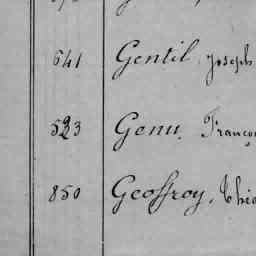 641 Gentil, Joseph
523 Genu, Franço
850 Geoffroy, Thi